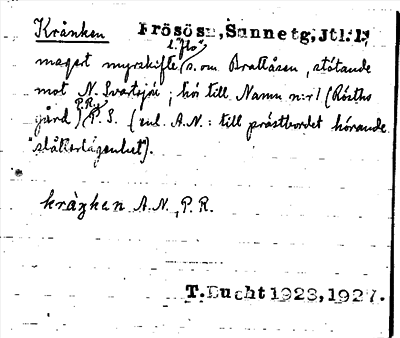 Krånken Frösö sn, Sunne tg, Jtl. l.
l. "flo"
magert myrskifte s. om Brattåsen, stötande
mot N. Svartsjön; hör till Namn nr 1 (Rösths
gård) P.R. P.S. (enl. A.N.: till prästbordet hörande
"slåtterlägenhet").
kràŋken A.N., P.R.
T. Bucht 1923, 1927.